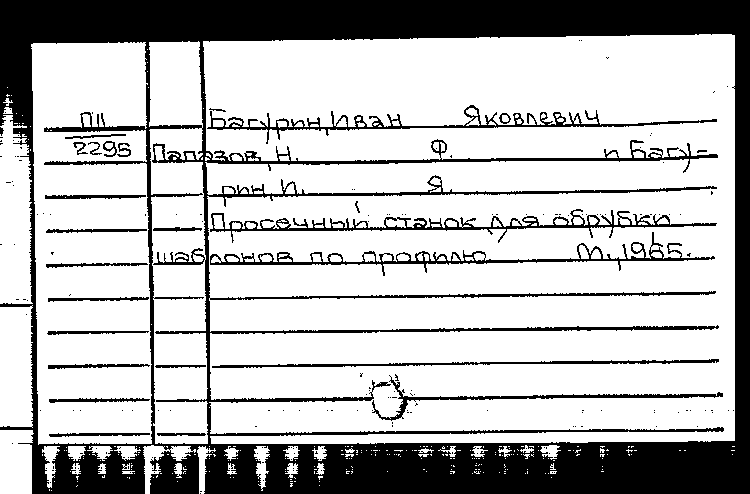 ПII Багурин, Иван Яковлевич
2295 Папазов, Н. Ф. и Багу-
рин, И. Я.
Просечный станок для обрубки
шаблонов по профилю М., 1965.